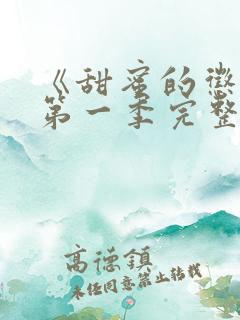 《甜蜜的懲
第一季完整
高德鎮
未经同意禁止转载